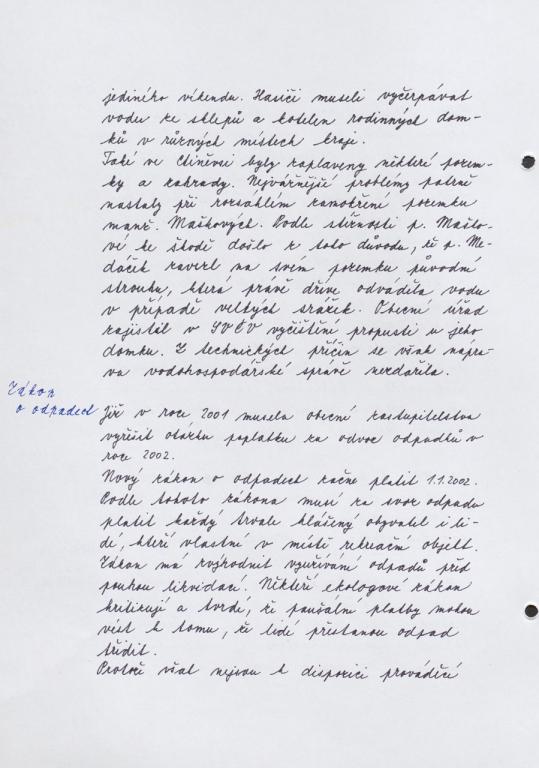 jediného víkendu. Hasiči museli vyčerpávat
vodu ze sklepů a kotelen rodinných dom-
ků v různých místech kraje.
Také ve Ctiněvsi byly zaplaveny některé pozem-
ky a zahrady. Nejvážnější problémy patrně
nastaly při rozsáhlém zamokření pozemku
manž. Maškových. Podle stížnosti p. Mašко-
vé ke škodě došlo z toho důvodu, že p. Me-
dáček zavezl na svém pozemku původní
strouhu, která právě dříve odváděla vodu
v případě velkých srážek. Obecní úřad
zajistil v SVČV vyčištění propusti u jeho
domku. Z technických příčin se však nápra-
va vodohospodářské správě nezdařila.
Zákon
o odpadech
Již v roce 2001 musela obecní zastupitelstva
vyřešit otázku poplatku za odvoz odpadků v
roce 2002.
Nový zákon o odpadech začne platit 1.1.2002.
Podle tohoto zákona musí za svoz odpadu
platit každý trvale hlášený obyvatel i li-
dé, kteří vlastní v místě rekreační objekt.
Zákon má zvýhodnit využívání odpadů před
pouhou likvidací. Někteří ekologové zákon
kritizují a tvrdí, že paušální platby mohou
vést k tomu, že lidé přestanou odpad
třídit.
Protože však nejsou k dispozici prováděcí